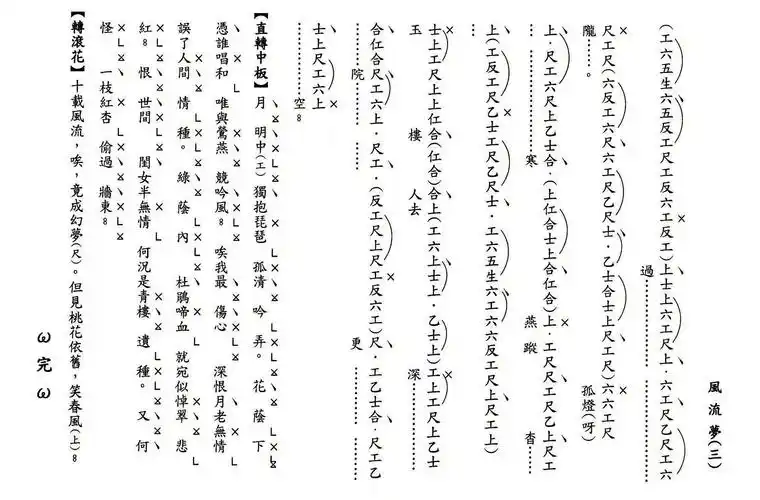 風流夢(三)
(工六五生六五反工尺工反六工反工)上士上六工尺上．六工尺乙尺工六
過
尺工尺(六反工六尺工尺乙尺士．乙士合士上尺工尺)六六工尺
隴。孤燈(呀)
上．尺工六尺上乙士合．(上仁合士上合仁合)上．工尺尺工尺乙上尺工
寒 燕蹤 杳
上(工反工尺乙士工尺乙尺士．工六五生六工六六反工尺上尺工上)
士上工尺上上仁合(仁合)合上(工六上士上．乙士上)工上工尺上乙士
玉 樓 人去 深
合仁合尺工六上．尺工．(反工尺上尺工反六工)尺．工乙士合．尺工乙
院 更
士上尺工六上
空。
【直轉中板】月明中(工)獨抱琵琶孤清吟弄。花蔭下
憑誰唱和唯與鶯燕競吟風。唉我最傷心深恨月老無情
誤了人間情種。綠蔭內杜鵑啼血就宛似悼翠悲
紅。恨世間閨女半無情何況是青樓遺種。又何
怪一枝紅杏偷過牆東。
【轉滾花】十載風流，唉，竟成幻夢(尺)。但見桃花依舊，笑春風(上)。
ω完ω